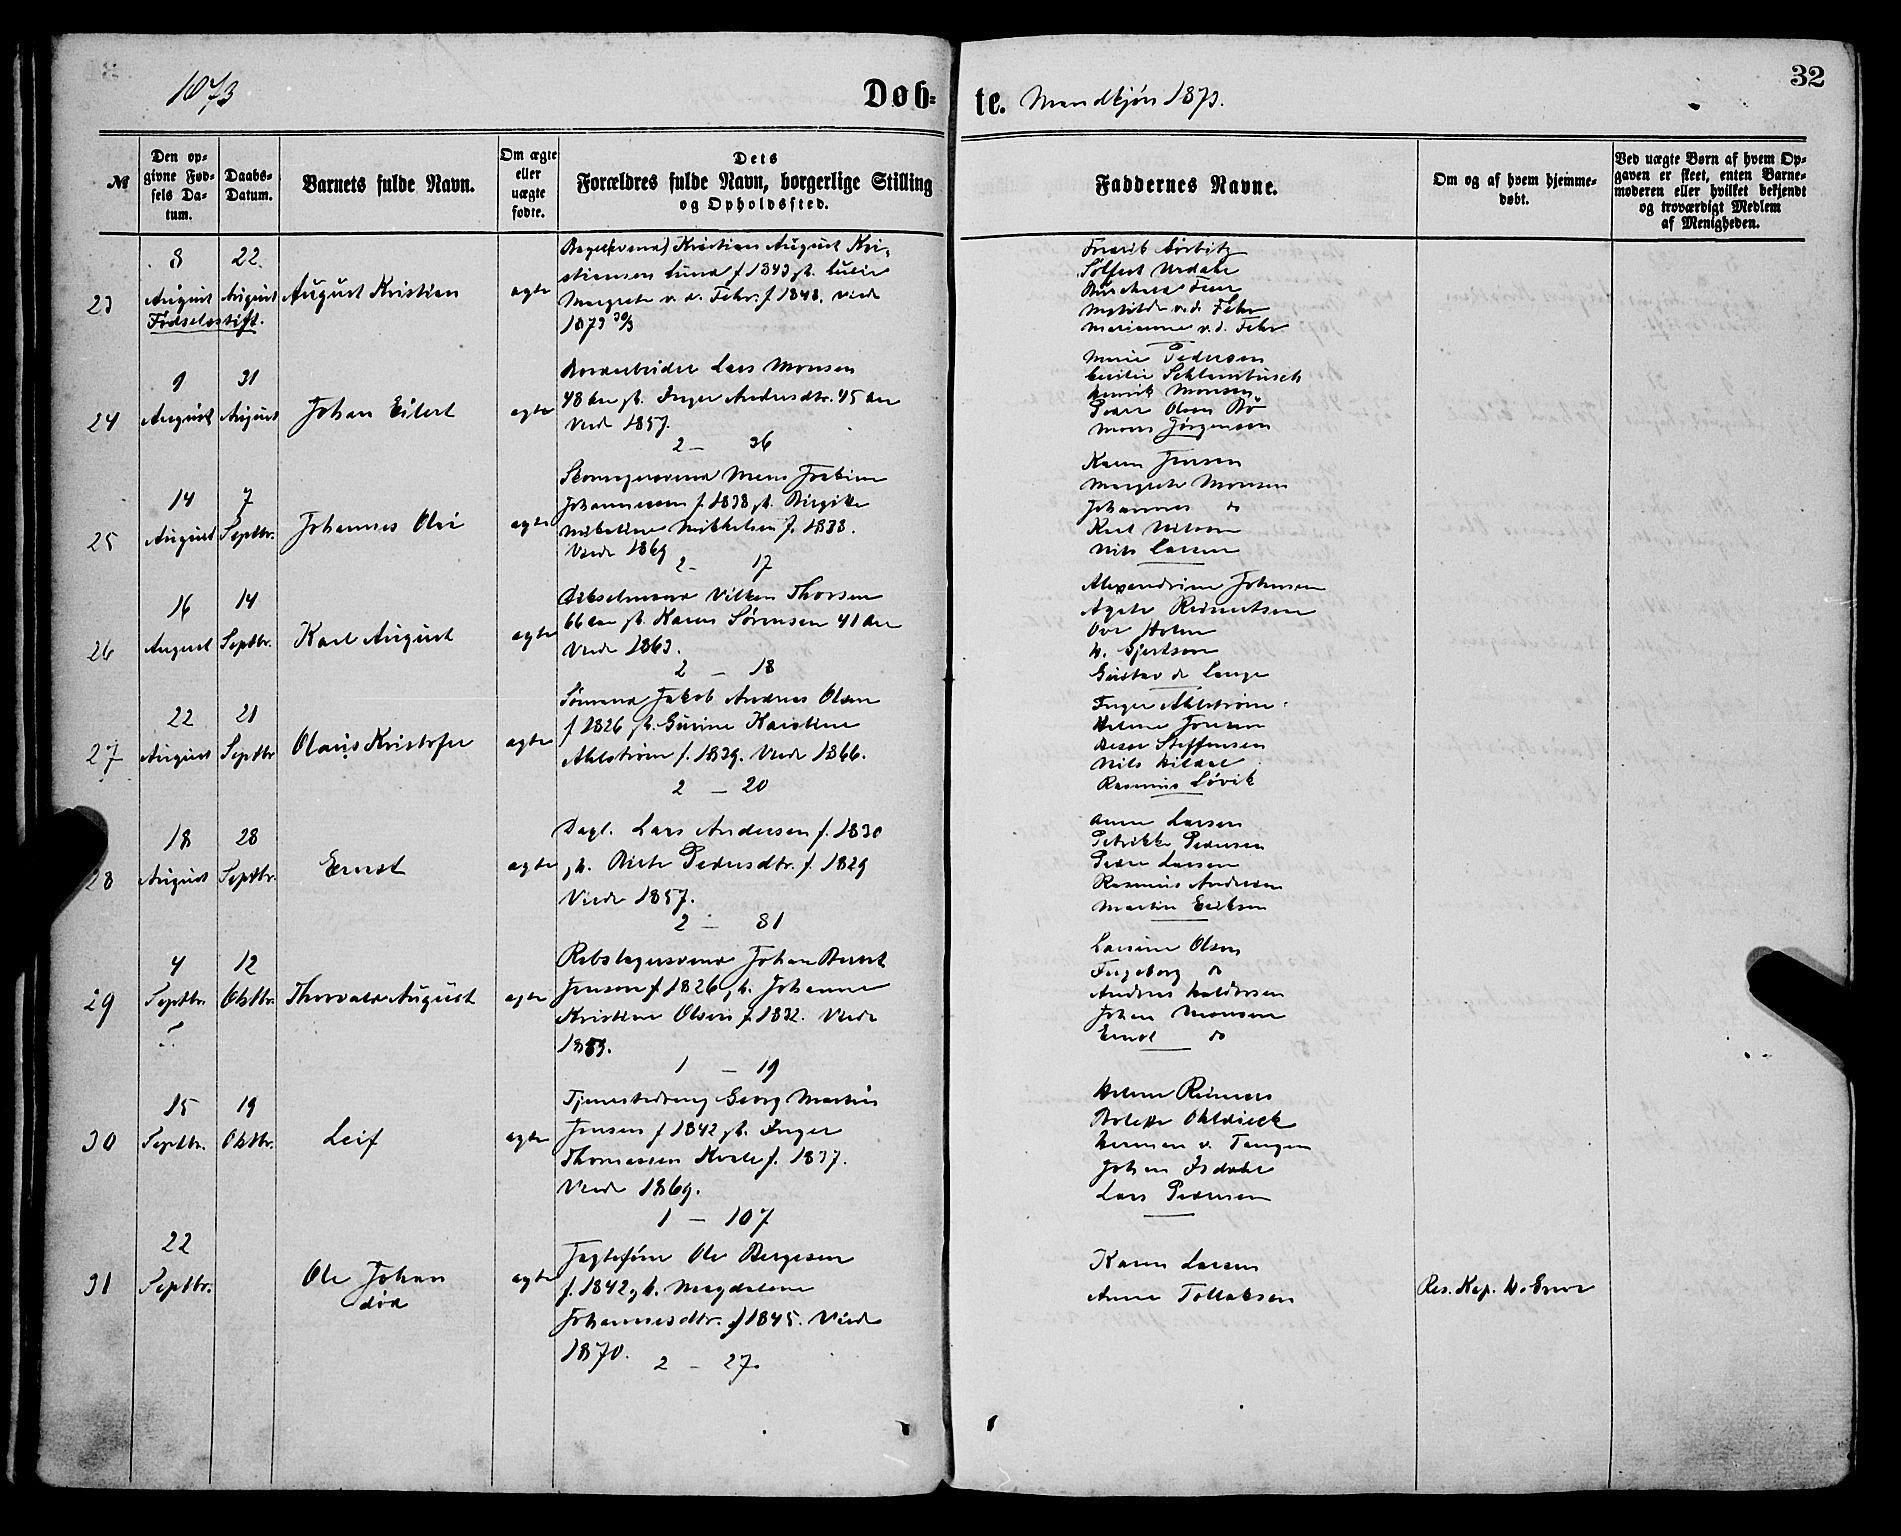 1873
Døb-
te. Mandkjøn 1873.
32
№
Den op-
givne Fød-
sels Da-
tum.
Daabs-
Datum.
Barnets fulde Navn.
Om ægte
eller
uægte
fødte.
Dets
Forældres fulde Navn, borgerlige Stilling
og Opholdssted.
Faddernes Navne.
Om og af hvem hjemme-
døbt.
Ved uægte Børn af hvem Op-
gaven er skeet, enten Barne-
moderen eller hvilket bekjendt
og troværdigt Medlem
af Menigheden.
23
8
August
22.
August
Fødselsstift.
August Kristian
ægte
Kristian August Kri-
stiansen Lund f 1843 gt. Lucie
Margrete v. d. Fehr. f 1848. Viede
1873 30/3
Mathilde v. d. Fehr
Marianne v. d. Fehr
24
9
August
31
August
Johan Eilert
ægte
Lars Monsen
48 Aar gt. Inger Andersdtr. 45 Aar
Viede 1857.
2 – 36
Marie Pedersen
Cecilie Schlambusch
Henrik Monsen
Peder Olsen Bø
Mons Jørgensen
25
14
August
7
Septbr.
Johannes Olai
ægte
Skomagersvend Mons
Johannessen f. 1838 gt. Birgitte
Mikkelsen f. 1838.
Viede 1869
2 – 17
Karen Jensen
Margrete Monsen
Johannes do
Karl Nilsen
Nils Larsen
26
16
August
14
Septbr.
Karl August
ægte
Vilken Thorsen
66 Aar gt. Karen Sørensen 41 Aar
Viede 1863.
2 – 18
Alexandrine Johnsen
Agete Reinertsen
Ove Holm
H. Gjertsen
Gustav de Lange
27
22
August
21
Septbr
Olaus Kristofer
ægte
Sømand Jakob Andreas Olsen
f 1826 gt. Gurine Karoline
Ahlstrøm f. 1839. Viede 1866.
2 – 20
Inger Ahlstrøm
Helene Jensen
Steffensen
Nils
Rasmus Løvik
28
18
August
28
Septbr.
Ernst
ægte
Dagl. Lars Andersen f. 1830
gt. Birte Pedersdtr. f. 1829
Viede 1857.
2 – 81
Anne Larsen
Petrikke Pedersen
Peder Larsen
Rasmus Andersen
Martin Eriksen
29
4
Septbr.
12
Oktbr.
Thorvald August
ægte
Rebslagersvend Johan Berent
Jensen f 1826 gt. Johanne
Kristine Olsen f. 1832. Viede
1 – 19
Larsine Olsen
Ingeborg do
Andreas Haldorsen
Johan Monsen
Ernst do
30
15
Septbr.
19
Oktbr.
Leif
ægte
Tjenestedreng Georg Martin
Jensen f 1842 gt. Inger
Thomassen Kvale f. 1837.
Viede 1869.
1 – 107
Helene Reimers
Bolette Ohldieck
Herman v. Tangen
Johan Isdahl
Lars Pedersen
31
22
Septbr.
Ole Johan
død
ægte
Jægtefører Ole Børgesen
f. 1842 gt. Magdalene
Johannesdtr. f 1845. Viede
1870.
2 – 27.
Karen Larsen
Anne Tollaksen
Res. Kap.